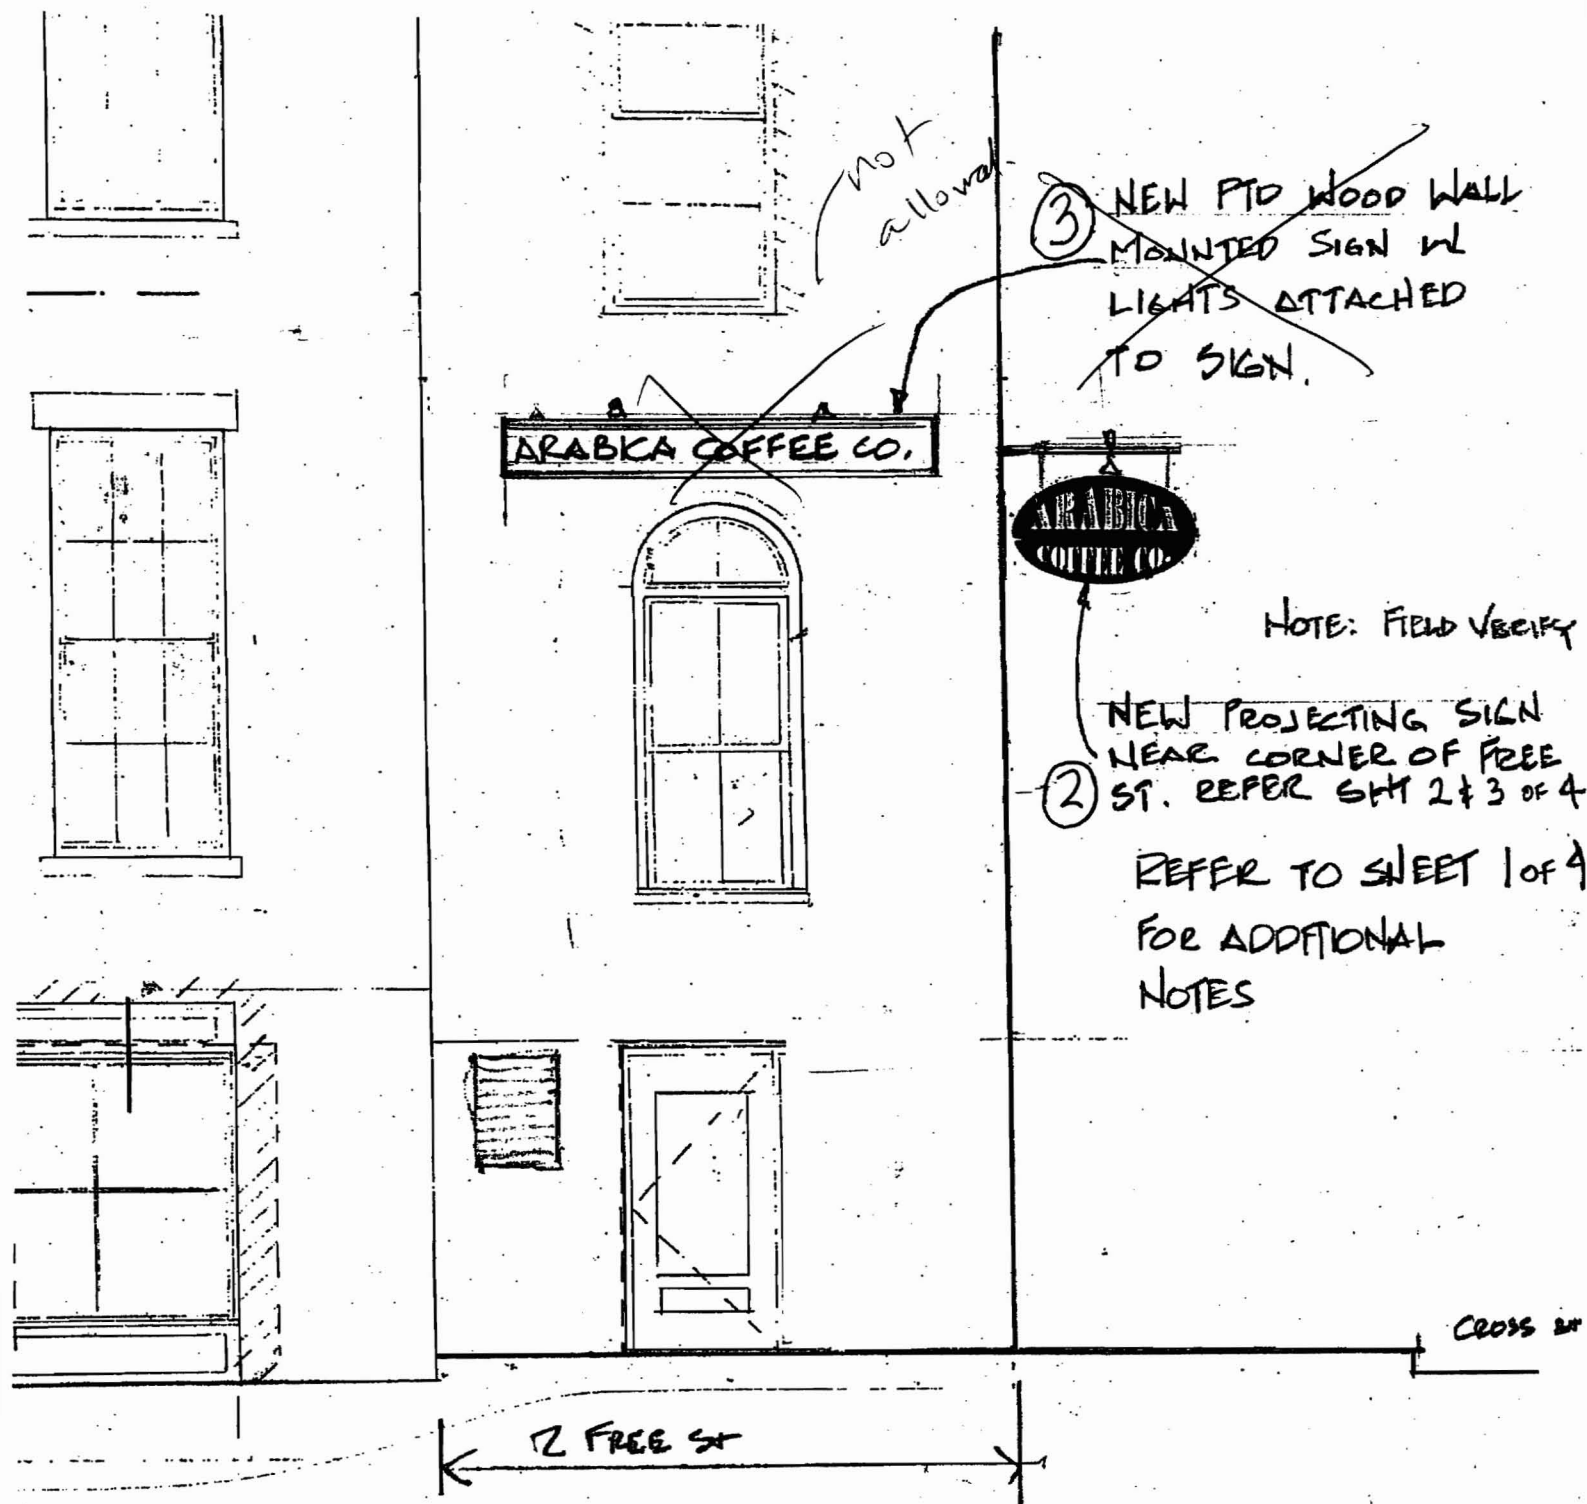 not
allowed
③ NEW PTD WOOD WALL
MOUNTED SIGN W/
LIGHTS ATTACHED
TO SIGN.
ARABICA COFFEE CO.
ARABICA
COFFEE CO.
NOTE: FIELD VERIFY
NEW PROJECTING SIGN
NEAR CORNER OF FREE
② ST. REFER SHT 2 & 3 OF 4
REFER TO SHEET 1 OF 4
FOR ADDITIONAL
NOTES
CROSS ST
FREE ST